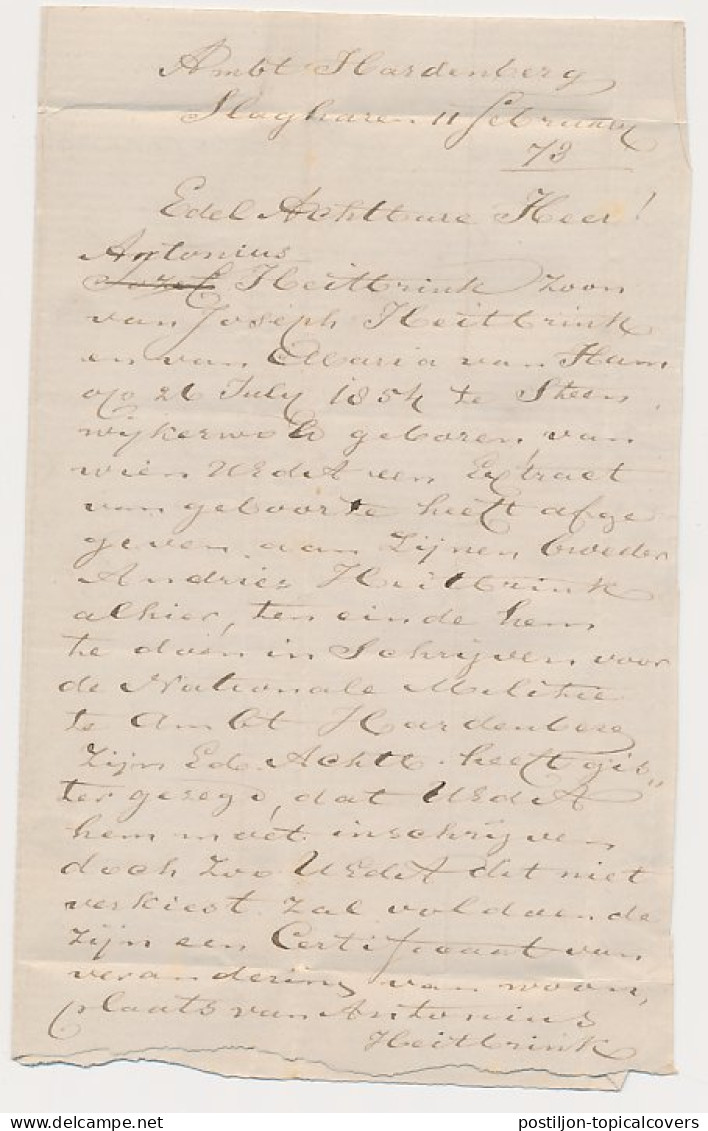 Ambt Hardenberg
Slagharen 11 februarij
73
Edel Achtbare Heer!
Antonius
Jozef Heitbrink Zoon
van Joseph Heitbrink
en van Maria van Ham
op 26 July 1854 te Steen
wijkerwold geboren, van
wien UEdA een Extract
van geboorte heeft afge
geven aan Zijnen broeder
Andries Heitbrink
alhier, ten einde hem
te doen in Schrijven voor
de Nationale Militie
te Ambt Hardenberg
Zijn Ed. Achtb. heeft gis„
ter gezegd, dat UEdA
hem moet inschrijven
doch Zoo UEdA dit niet
verkiest zal voldoende
zijn een Certificaat van
verandering van woon,
plaats van Antonius
Heitbrink
postiljon-topicalcovers